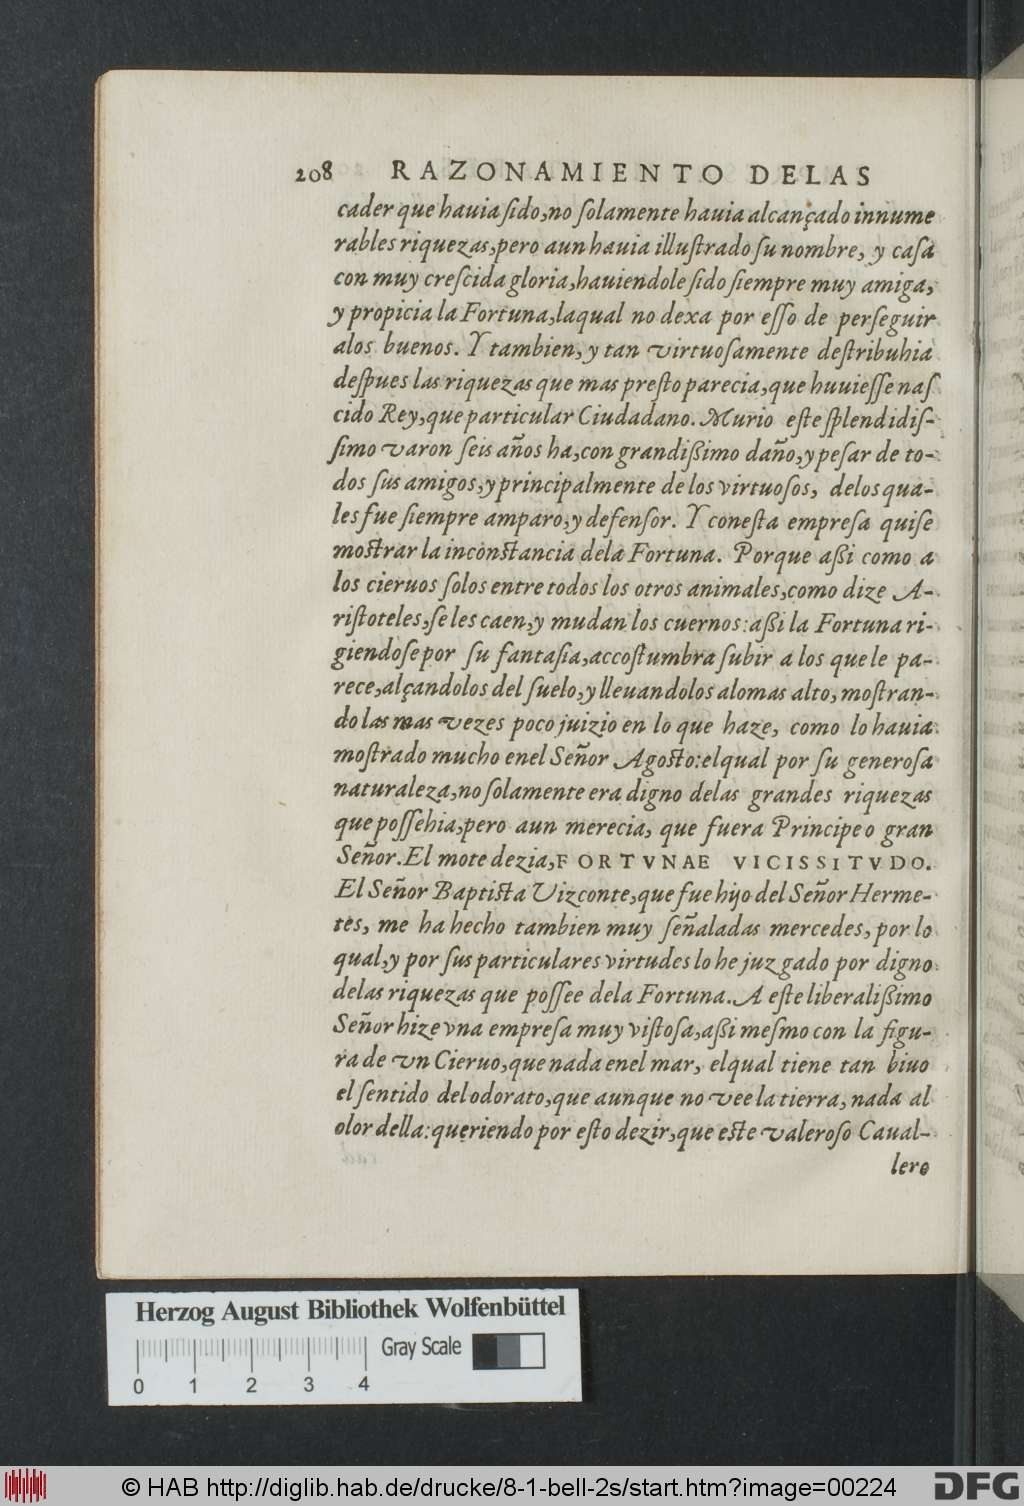 208 RAZONAMIENTO DELAS
cader que hauia ſido, no ſolamente hauia alcançado innume
rables riquezas, pero aun hauia illuſtrado ſu nombre, y caſa
con muy creſcida gloria, hauiendole ſido ſiempre muy amiga,
y propicia la Fortuna, laqual no dexa por eſſo de perſeguir
alos buenos. Y tambien, y tan virtuoſamente deſtribuhia
deſpues las riquezas que mas preſto parecia, que huuieſſe naſ
cido Rey, que particular Ciudadano. Murio eſte ſplendidiſ-
ſimo varon ſeis años ha, con grandißimo daño, y peſar de to-
dos ſus amigos, y principalmente de los virtuoſos, delos qua-
les fue ſiempre amparo, y defenſor. Y coneſta empreſa quiſe
moſtrar la inconſtancia dela Fortuna. Porque aßi como a
los cieruos ſolos entre todos los otros animales, como dize A-
riſtoteles, ſe les caen, y mudan los cuernos: aßi la Fortuna ri-
giendoſe por ſu fantaſia, accoſtumbra ſubir a los que le pa-
rece, alçandolos del ſuelo, y lleuandolos alomas alto, moſtran-
do las mas vezes poco juizio en lo que haze, como lo hauia
moſtrado mucho enel Señor Agoſto: elqual por ſu generoſa
naturaleza, no ſolamente era digno delas grandes riquezas
que poſſehia, pero aun merecia, que fuera Principe o gran
Señor. El mote dezia, FORTVNAE VICISSITVDO.
El Señor Baptiſta Vizconte, que fue hijo del Señor Herme-
tes, me ha hecho tambien muy ſeñaladas mercedes, por lo
qual, y por ſus particulares virtudes lo he juzgado por digno
delas riquezas que poſſee dela Fortuna. A eſte liberalißimo
Señor hize vna empreſa muy viſtoſa, aßi meſmo con la figu-
ra de vn Cieruo, que nada enel mar, elqual tiene tan biuo
el ſentido del odorato, que aunque no vee la tierra, nada al
olor della: queriendo por eſto dezir, que eſte valeroſo Caual-
lero
Herzog August Bibliothek Wolfenbüttel
Gray Scale
0 1 2 3 4
© HAB http://diglib.hab.de/drucke/8-1-bell-2s/start.htm?image=00224
DFG